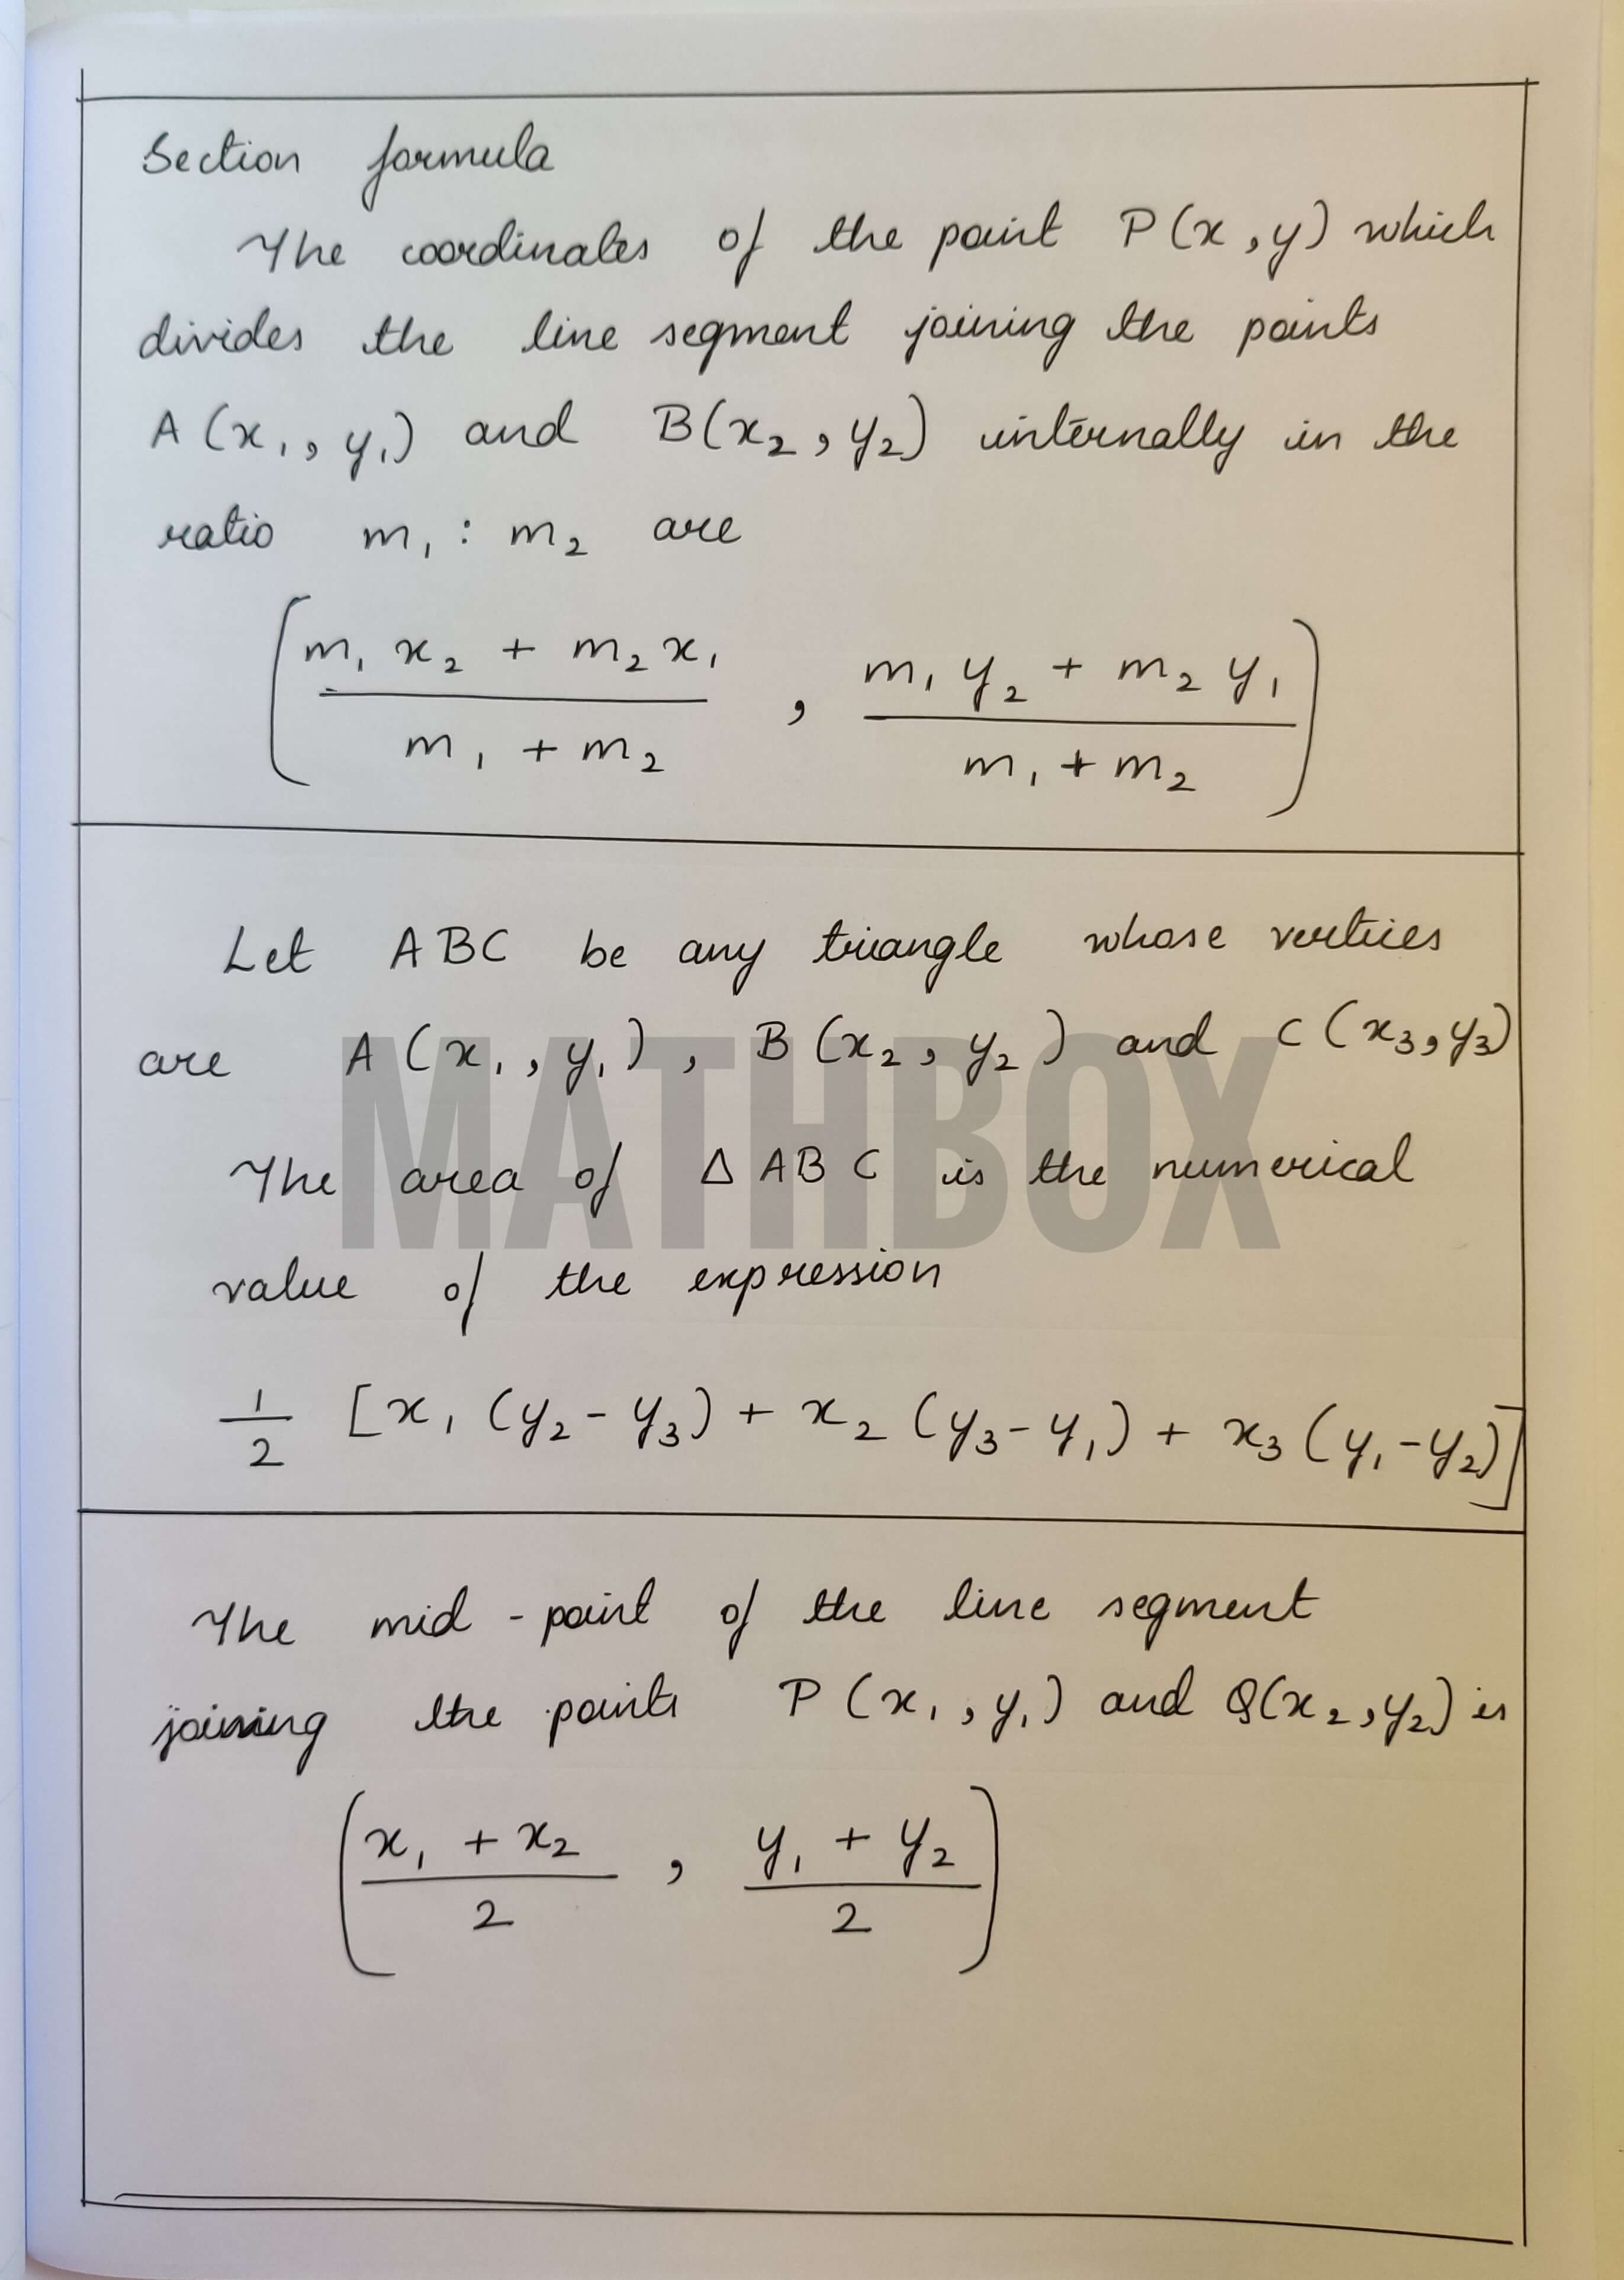 Section formula
The coordinates of the point P(x, y) which
divides the line segment joining the points
A(x₁, y₁) and B(x₂, y₂) internally in the
ratio m₁ : m₂ are
( (m₁x₂ + m₂x₁)/(m₁ + m₂) , (m₁y₂ + m₂y₁)/(m₁ + m₂) )
Let ABC be any triangle whose vertices
are A(x₁, y₁), B(x₂, y₂) and C(x₃, y₃)
MATHBOX
The area of Δ ABC is the numerical
value of the expression
1/2 [x₁(y₂ - y₃) + x₂(y₃ - y₁) + x₃(y₁ - y₂)]
The mid-point of the line segment
joining the points P(x₁, y₁) and Q(x₂, y₂) is
( (x₁ + x₂)/2 , (y₁ + y₂)/2 )